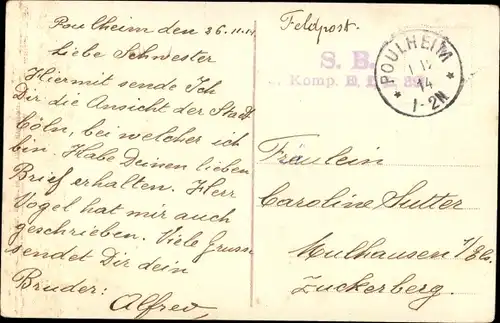 Poulheim den 26.11.14
Liebe Schwester
Hiermit sende Ich
Dir die Ansicht der Stadt
Cöln, bei welcher ich
bin. Habe Deinen lieben
Brief erhalten. Herr
Vogel hat mir auch
geschrieben. Viele Grusse
sendet Dir dein
Bruder:
Alfred,
Feldpost.
S. B.
Komp.
POULHEIM
14
1-2N
Fräulein
Caroline Sutter
Mulhausen i/Els.
Zuckerberg.